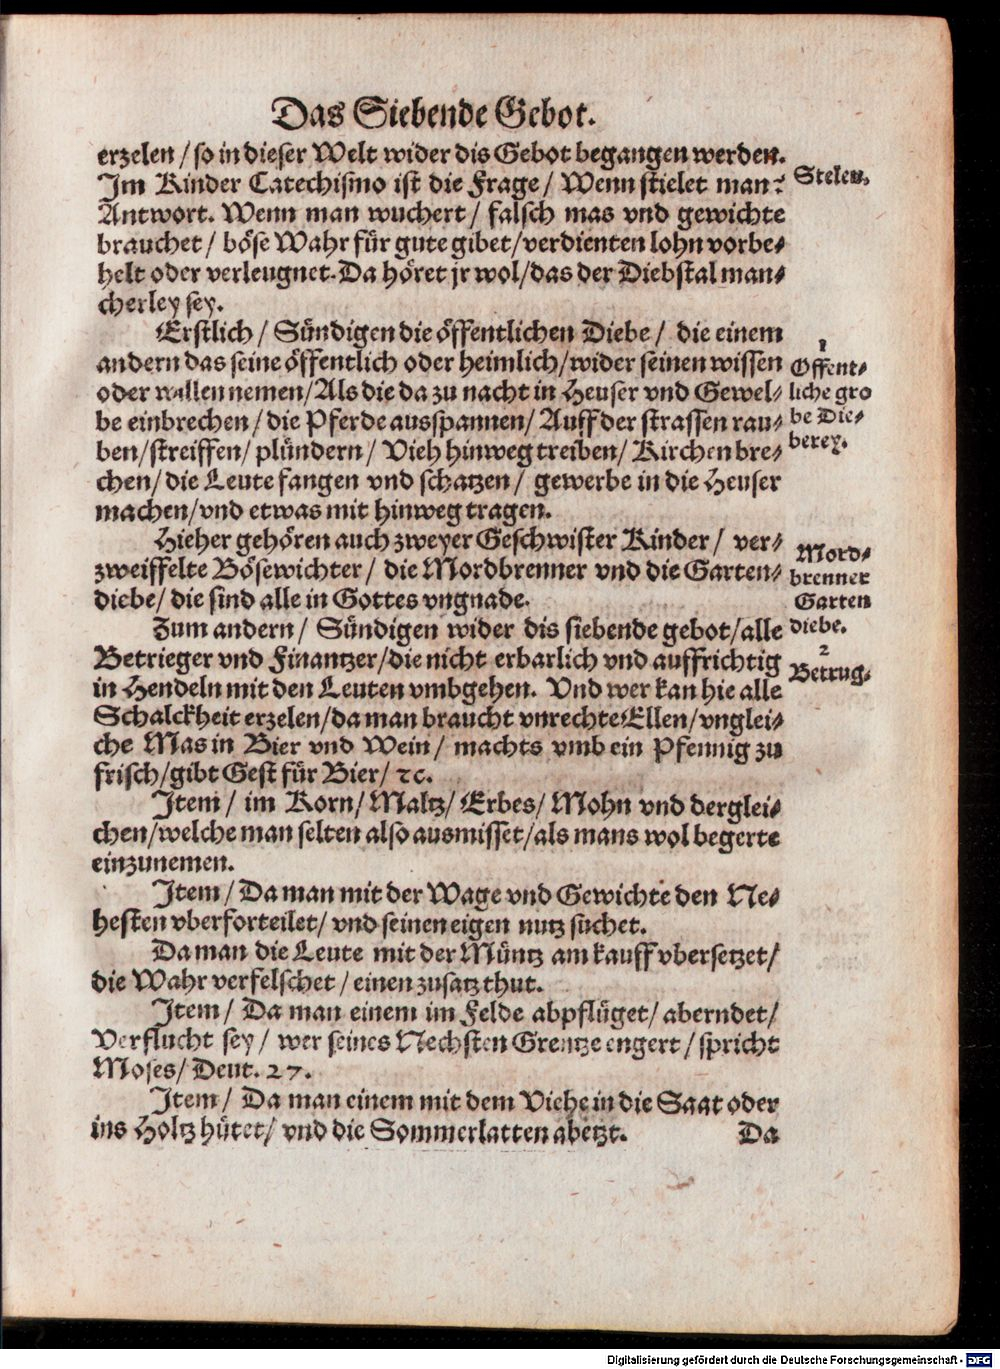 Das Siebende Gebot.
erzelen / so in dieser Welt wider dis Gebot begangen werden.
Im Kinder Catechismo ist die Frage / Wenn stielet man?
Stelen.
Antwort. Wenn man wuchert / falsch mas vnd gewichte
brauchet / böse Wahr für gute gibet / verdienten lohn vorbe-
helt oder verleugnet. Da höret jr wol / das der Diebstal man-
cherley sey.
Erstlich / Sündigen die öffentlichen Diebe / die einem
andern das seine öffentlich oder heimlich / wider seinen wissen
oder willen nemen / Als die da zu nacht in Heuser vnd Gewel-
be einbrechen / die Pferde ausspannen / Auff der strassen rau-
ben / streiffen / plündern / Vieh hinweg treiben / Kirchen bre-
chen / die Leute fangen vnd schatzen / gewerbe in die Heuser
machen / vnd etwas mit hinweg tragen.
1
Offent-
liche gro
be Die-
berey.
Hieher gehören auch zweyer Geschwister Kinder / ver-
zweiffelte Bösewichter / die Mordbrenner vnd die Garten-
diebe / die sind alle in Gottes vngnade.
Mord-
brenner
Garten
diebe.
Zum andern / Sündigen wider dis siebende gebot / alle
Betrieger vnd Finantzer / die nicht erbarlich vnd auffrichtig
in Hendeln mit den Leuten vmbgehen. Vnd wer kan hie alle
Schalckheit erzelen / da man braucht vnrechte Ellen / vnglei-
che Mas in Bier vnd Wein / machts vmb ein Pfennig zu
frisch / gibt Gest für Bier / ꝛc.
2
Betrug.
Item / im Korn / Maltz / Erbes / Mohn vnd derglei-
chen / welche man selten also ausmisset / als mans wol begerte
einzunemen.
Item / Da man mit der Wage vnd Gewichte den Ne-
hesten vberforteilet / vnd seinen eigen nutz suchet.
Da man die Leute mit der Müntz am kauff vbersetzet /
die Wahr verfelschet / einen zusatz thut.
Item / Da man einem im Felde abpflüget / aberndet /
Verflucht sey / wer seines Nechsten Grentze engert / spricht
Moses / Deut. 27.
Item / Da man einem mit dem Viehe in die Saat oder
ins Holtz hütet / vnd die Sommerlatten abetzt.
Da
Digitalisierung gefördert durch die Deutsche Forschungsgemeinschaft - DFG